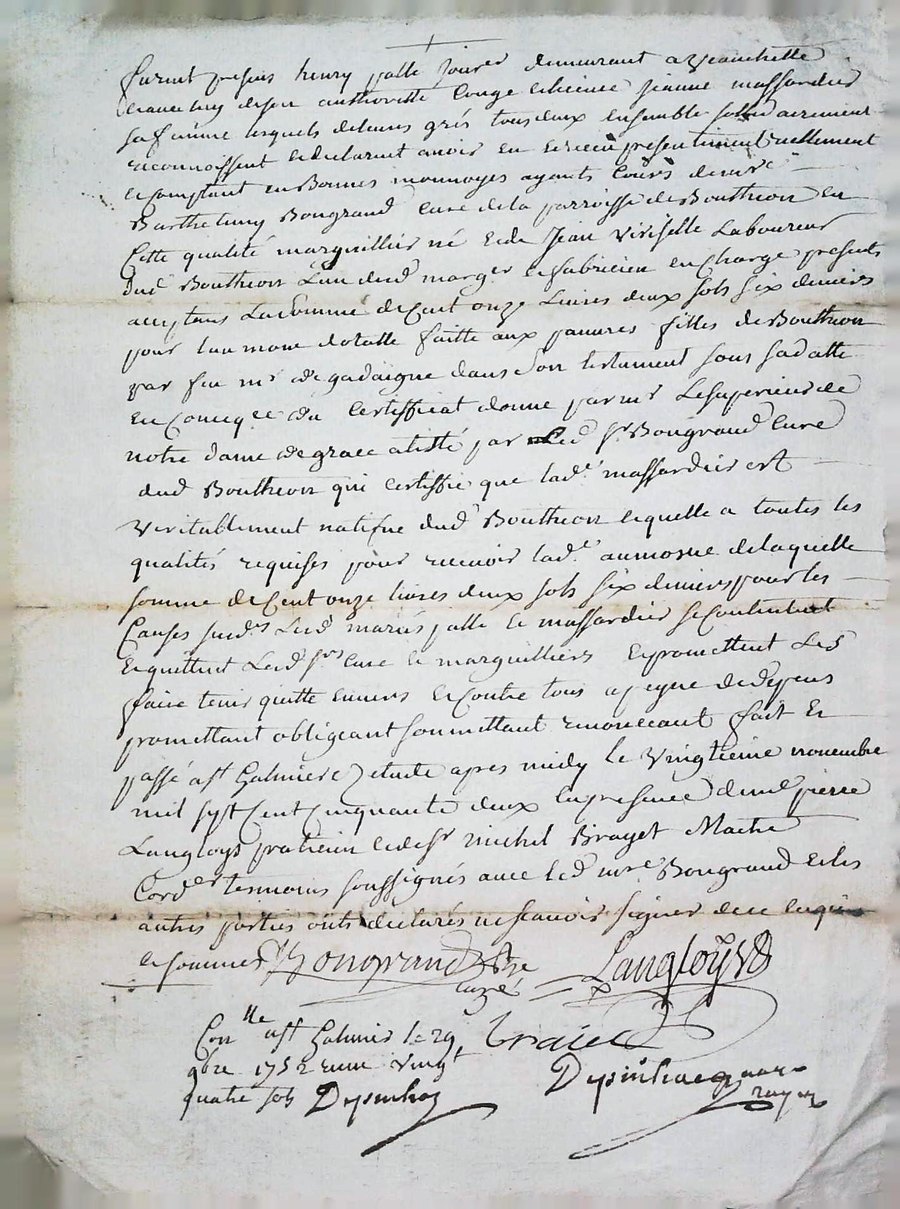 furent presens henry palle jour.er demeurant a veauchette
et avec luy de son authoritté conge et licence jeanne massardier
sa femme lesquels de leurs grés tous deux ensemble sollidairement
reconnoissent et declarent avoir eu et receu presentement reellement
et comptant en bonnes monnoyes ayants cours de m.re
Barthelemy Bongrand curé de la parroisse de Bouthéon en
cette qualité marguillier né et de Jean Viriselle Laboureur
dud. Bouthéon l'un desd. marger et fabricien en charge presents
acceptans La somme de Cent onze Livres deux sols six deniers
pour l'aumone dotalle faitte aux pauvres filles de Bouthéon
par feu m.r de gadaigne dans son testament sous sa datte
en conseq.ce du certifficat donné par m.r Le superieur de
notre dame de grace atisté par Led. s.r Bongrand curé
dud. Bouthéon qui certiffie que lad.e massardier est
Veritablement natifve dud. Bouthéon et quelle a toutes les
qualités requises pour recevoir lad.e aumosne de laquelle
somme de Cent onze livres deux sols six deniers pour les
Causes susd.es Lesd. mariés palle et massardier se contentent
et quittent Lesd. s.rs curé et marguilliers et promettent Les
faire tenir quitte envers et contre tous a peyne de depens
promettant obligeant soumettant renonceant fait et
passé a s.t Galmier etude apres midy le vingtieme novembre
mil sept Cent Cinquante deux en presence de m.e pierre
Langloys praticien et de s.r michel Brayet Maitre
Cord.er temoins soussignés avec led. m.re Bongrand et les
autres parties onts declarés ne scavoir signer de ce enquis
et sommés Bongrand p.tre Langloys
curé
Con.lle a s.t Galmier le 29 braiet
9bre 1752 receu vingt
quatre sols Depinhac Depinhac no.re
royal